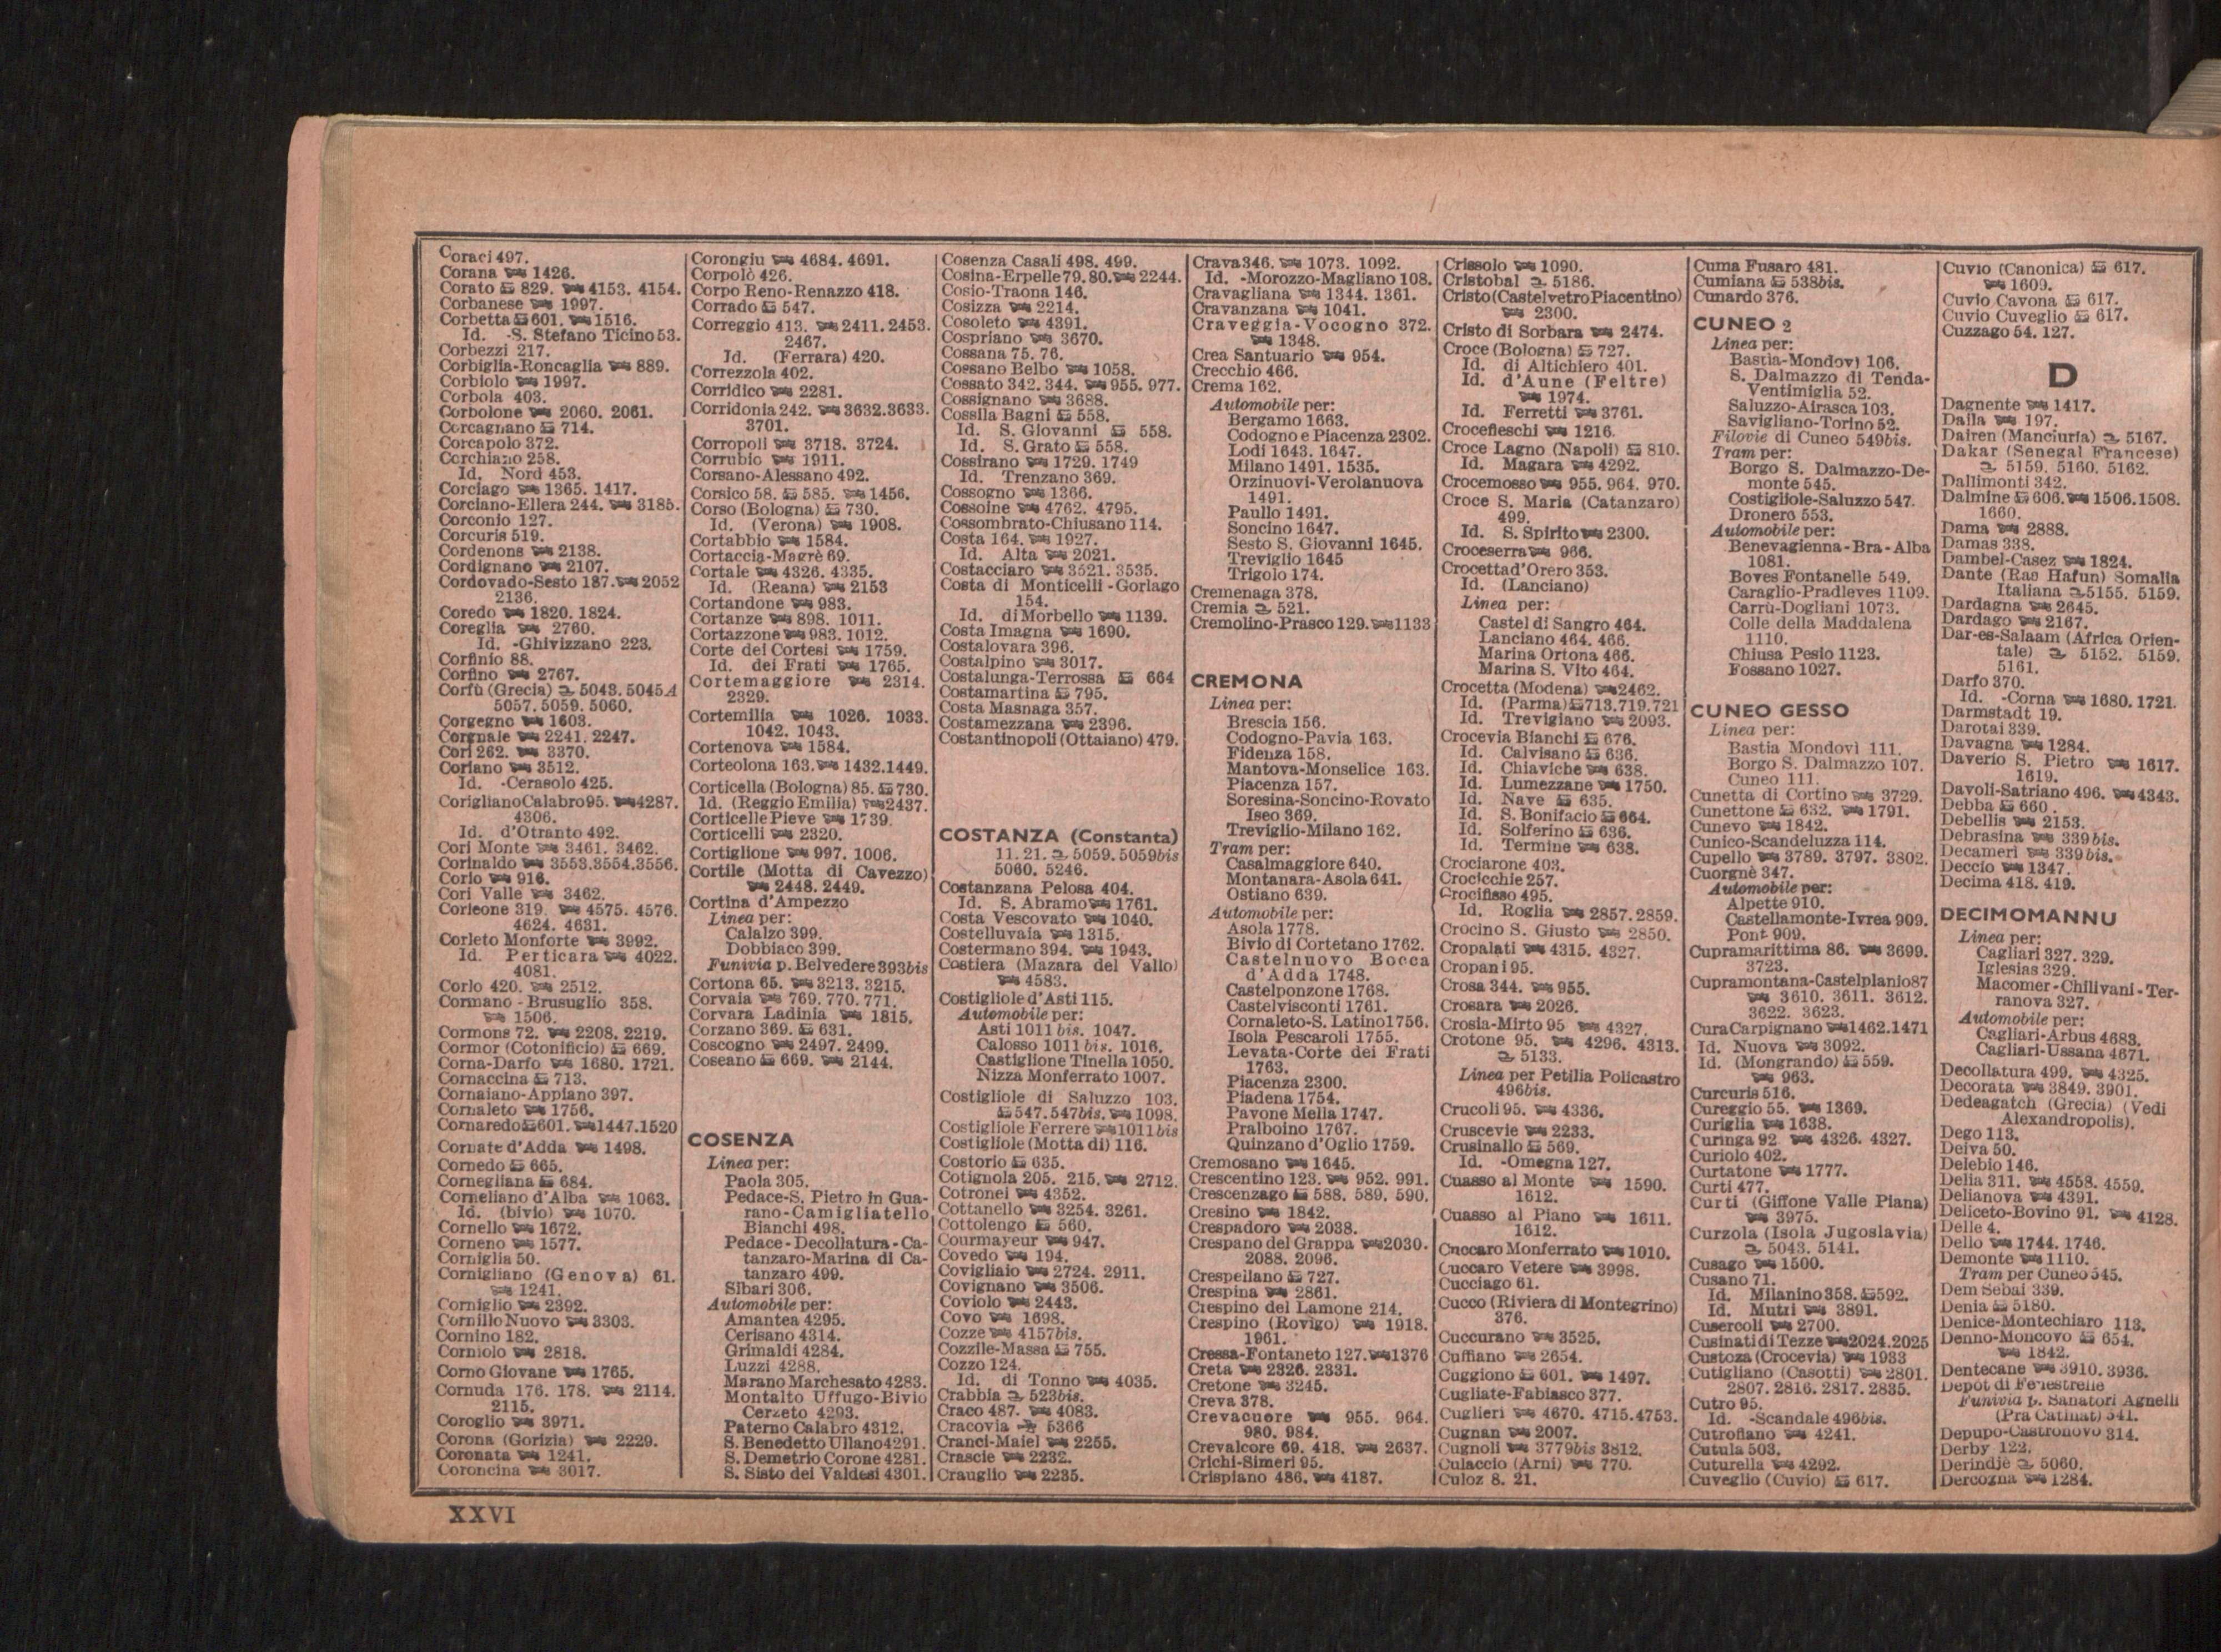 Coraci 497.
Corana 1426.
Corato 829. 4153. 4154.
Corbanese 1997.
Corbetta 601. 1516.
Id. -S. Stefano Ticino 53.
Corbezzi 217.
Corbiglia-Roncaglia 889.
Corbiolo 1997.
Corbola 403.
Corbolone 2060. 2061.
Corcagnano 714.
Corcapolo 372.
Corchiano 258.
Id. Nord 453.
Corciago 1365. 1417.
Corciano-Ellera 244. 3185.
Corconio 127.
Corcuris 519.
Cordenons 2138.
Cordignano 2107.
Cordovado-Sesto 187. 2052
2136.
Coredo 1820. 1824.
Coreglia 2760.
Id. -Ghivizzano 223.
Corfinio 88.
Corfino 2767.
Corfù (Grecia) 5043. 5045A
5057. 5059. 5060.
Corgegno 1603.
Corgnale 2241. 2247.
Cori 262. 3370.
Coriano 3512.
Id. -Cerasolo 425.
Corigliano Calabro 95. 4287.
4306.
Id. d'Otranto 492.
Cori Monte 3461. 3462.
Corinaldo 3553.3554.3556.
Corio 916.
Cori Valle 3462.
Corleone 319. 4575. 4576.
4624. 4631.
Corleto Monforte 3992.
Id. Perticara 4022.
4081.
Corlo 420. 2512.
Cormano - Brusuglio 358.
1506.
Cormons 72. 2208. 2219.
Cormor (Cotonificio) 669.
Corna-Darfo 1680. 1721.
Cornaccina 713.
Cornaiano-Appiano 397.
Cornaleto 1756.
Cornaredo 601. 1447.1520
Cornate d'Adda 1498.
Cornedo 665.
Cornegliana 684.
Corneliano d'Alba 1063.
Id. (bivio) 1070.
Cornello 1672.
Corneno 1577.
Corniglia 50.
Cornigliano (Genova) 61.
1241.
Corniglio 2392.
Cornillo Nuovo 3303.
Cornino 182.
Corniolo 2818.
Corno Giovane 1765.
Cornuda 176. 178. 2114.
2115.
Coroglio 3971.
Corona (Gorizia) 2229.
Coronata 1241.
Coroncina 3017.
Corongiu 4684. 4691.
Corpolò 426.
Corpo Reno-Renazzo 418.
Corrado 547.
Correggio 413. 2411. 2453.
2467.
Id. (Ferrara) 420.
Correzzola 402.
Corridico 2281.
Corridonia 242. 3632.3633.
3701.
Corropoli 3718. 3724.
Corrubio 1911.
Corsano-Alessano 492.
Corsico 58. 585. 1456.
Corso (Bologna) 730.
Id. (Verona) 1908.
Cortabbio 1584.
Cortaccia-Magrè 69.
Cortale 4326. 4335.
Id. (Reana) 2153
Cortandone 983.
Cortanze 898. 1011.
Cortazzone 983. 1012.
Corte dei Cortesi 1759.
Id. dei Frati 1765.
Cortemaggiore 2314.
2329.
Cortemilia 1026. 1033.
1042. 1043.
Cortenova 1584.
Corteolona 163. 1432.1449.
Corticella (Bologna) 85. 730.
Id. (Reggio Emilia) 2437.
Corticelle Pieve 1739.
Corticelli 2320.
Cortiglione 997. 1006.
Cortile (Motta di Cavezzo)
2448. 2449.
Cortina d'Ampezzo
Linea per:
Calalzo 399.
Dobbiaco 399.
Funivia p. Belvedere 393bis
Cortona 65. 3213. 3215.
Corvaia 769. 770. 771.
Corvara Ladinia 1815.
Corzano 369. 631.
Coscogno 2497. 2499.
Coseano 669. 2144.
COSENZA
Linea per:
Paola 305.
Pedace-S. Pietro in Gua-
rano-Camigliatello
Bianchi 498.
Pedace-Decollatura-Ca-
tanzaro-Marina di Ca-
tanzaro 499.
Sibari 306.
Automobile per:
Amantea 4295.
Cerisano 4314.
Grimaldi 4284.
Luzzi 4288.
Marano Marchesato 4283.
Montalto Uffugo-Bivio
Cerzeto 4293.
Paterno Calabro 4312.
S. Benedetto Ullano 4291.
S. Demetrio Corone 4281.
S. Sisto dei Valdesi 4301.
Cosenza Casali 498. 499.
Cosina-Erpelle 79. 80. 2244.
Cosio-Traona 146.
Cosizza 2214.
Cosoleto 4391.
Cospriano 3670.
Cossana 75. 76.
Cossano Belbo 1058.
Cossato 342. 344. 955. 977.
Cossignano 3688.
Cossila Bagni 558.
Id. S. Giovanni 558.
Id. S. Grato 558.
Cossirano 1729. 1749
Id. Trenzano 369.
Cossogno 1366.
Cossoine 4762. 4795.
Cossombrato-Chiusano 114.
Costa 164. 1927.
Id. Alta 2021.
Costacciaro 3521. 3535.
Costa di Monticelli-Gorlago
154.
Id. di Morbello 1139.
Costa Imagna 1690.
Costalovara 396.
Costalpino 3017.
Costalunga-Terrossa 664
Costamartina 795.
Costa Masnaga 357.
Costamezzana 2396.
Costantinopoli (Ottaiano) 479.
COSTANZA (Constanta)
11. 21. 5059. 5059bis
5060. 5246.
Costanzana Pelosa 404.
Id. S. Abramo 1761.
Costa Vescovato 1040.
Costelluvaia 1315.
Costermano 394. 1943.
Costiera (Mazara del Vallo)
4583.
Costigliole d'Asti 115.
Automobile per:
Asti 1011 bis. 1047.
Calosso 1011 bis. 1016.
Castiglione Tinella 1050.
Nizza Monferrato 1007.
Costigliole di Saluzzo 103.
547. 547bis. 1098.
Costigliole Ferrere 1011bis
Costigliole (Motta di) 116.
Costorio 635.
Cotignola 205. 215. 2712.
Cotronei 4352.
Cottanello 3254. 3261.
Cottolengo 560.
Courmayeur 947.
Covedo 194.
Covigliaio 2724. 2911.
Covignano 3506.
Coviolo 2443.
Covo 1698.
Cozze 4157bis.
Cozzile-Massa 755.
Cozzo 124.
Id. di Tonno 4035.
Crabbia 523bis.
Craco 487. 4083.
Cracovia 5366
Cranci-Maiel 2255.
Crascie 2232.
Crauglio 2235.
Crava 346. 1073. 1092.
Id. -Morozzo-Magliano 108.
Cravagliana 1344. 1361.
Cravanzana 1041.
Craveggia-Vocogno 372.
1348.
Crea Santuario 954.
Crecchio 466.
Crema 162.
Automobile per:
Bergamo 1663.
Codogno e Piacenza 2302.
Lodi 1643. 1647.
Milano 1491. 1535.
Orzinuovi-Verolanuova
1491.
Paullo 1491.
Soncino 1647.
Sesto S. Giovanni 1645.
Treviglio 1645
Trigolo 174.
Cremenaga 378.
Cremia 521.
Cremolino-Prasco 129. 1133
CREMONA
Linea per:
Brescia 156.
Codogno-Pavia 163.
Fidenza 158.
Mantova-Monselice 163.
Piacenza 157.
Soresina-Soncino-Rovato
Iseo 369.
Treviglio-Milano 162.
Tram per:
Casalmaggiore 640.
Montanara-Asola 641.
Ostiano 639.
Automobile per:
Asola 1778.
Bivio di Cortetano 1762.
Castelnuovo Bocca
d'Adda 1748.
Castelponzone 1768.
Castelvisconti 1761.
Cornaleto-S. Latino 1756.
Isola Pescaroli 1755.
Levata-Corte dei Frati
1763.
Piacenza 2300.
Piadena 1754.
Pavone Mella 1747.
Pralboino 1767.
Quinzano d'Oglio 1759.
Cremosano 1645.
Crescentino 123. 952. 991.
Crescenzago 588. 589. 590.
Cresino 1842.
Crespadoro 2038.
Crespano del Grappa 2030.
2088. 2096.
Crespellano 727.
Crespina 2861.
Crespino del Lamone 214.
Crespino (Rovigo) 1918.
1961.
Cressa-Fontaneto 127. 1376
Creta 2326. 2331.
Cretone 3245.
Creva 378.
Crevacuore 955. 964.
980. 984.
Crevalcore 69. 418. 2637.
Crichi-Simeri 95.
Crispiano 486. 4187.
Crissolo 1090.
Cristobal 5186.
Cristo (Castelvetro Piacentino)
2300.
Cristo di Sorbara 2474.
Croce (Bologna) 727.
Id. di Altichiero 401.
Id. d'Aune (Feltre)
1974.
Id. Ferretti 3761.
Crocefieschi 1216.
Croce Lagno (Napoli) 810.
Id. Magara 4292.
Crocemosso 955. 964. 970.
Croce S. Maria (Catanzaro)
499.
Id. S. Spirito 2300.
Croceserra 966.
Crocetta d'Orero 353.
Id. (Lanciano)
Linea per:
Castel di Sangro 464.
Lanciano 464. 466.
Marina Ortona 466.
Marina S. Vito 464.
Crocetta (Modena) 2462.
Id. (Parma) 713.719.721
Id. Trevigiano 2093.
Crocevia Bianchi 676.
Id. Calvisano 636.
Id. Chiaviche 638.
Id. Lumezzane 1750.
Id. Nave 635.
Id. S. Bonifacio 664.
Id. Solferino 636.
Id. Termine 638.
Crociarone 403.
Crocicchie 257.
Crocifisso 495.
Id. Roglia 2857. 2859.
Crocino S. Giusto 2850.
Cropalati 4315. 4327.
Cropani 95.
Crosa 344. 955.
Crosara 2026.
Crosia-Mirto 95 4327.
Crotone 95. 4296. 4313.
5133.
Linea per Petilia Policastro
496bis.
Crucoli 95. 4336.
Cruscevie 2233.
Crusinallo 569.
Id. -Omegna 127.
Cuasso al Monte 1590.
1612.
Cuasso al Piano 1611.
1612.
Cuccaro Monferrato 1010.
Cuccaro Vetere 3998.
Cucciago 61.
Cucco (Riviera di Montegrino)
376.
Cuccurano 3525.
Cuffiano 2654.
Cuggiono 601. 1497.
Cugliate-Fabiasco 377.
Cuglieri 4670. 4715.4753.
Cugnan 2007.
Cugnoli 3779bis 3812.
Culaccio (Arni) 770.
Culoz 8. 21.
Cuma Fusaro 481.
Cumiana 538bis.
Cunardo 376.
CUNEO 2
Linea per:
Bastia-Mondovì 106.
S. Dalmazzo di Tenda-
Ventimiglia 52.
Saluzzo-Airasca 103.
Savigliano-Torino 52.
Filovie di Cuneo 549bis.
Tram per:
Borgo S. Dalmazzo-De-
monte 545.
Costigliole-Saluzzo 547.
Dronero 553.
Automobile per:
Benevagienna-Bra-Alba
1081.
Boves Fontanelle 549.
Caraglio-Pradleves 1109.
Carrù-Dogliani 1073.
Colle della Maddalena
1110.
Chiusa Pesio 1123.
Fossano 1027.
CUNEO GESSO
Linea per:
Bastia Mondovì 111.
Borgo S. Dalmazzo 107.
Cuneo 111.
Cunetta di Cortino 3729.
Cunettone 632. 1791.
Cunevo 1842.
Cunico-Scandeluzza 114.
Cupello 3789. 3797. 3802.
Cuorgnè 347.
Automobile per:
Alpette 910.
Castellamonte-Ivrea 909.
Pont 909.
Cupramarittima 86. 3699.
3723.
Cupramontana-Castelplanio 87
3610. 3611. 3612.
3622. 3623.
Cura Carpignano 1462.1471
Id. Nuova 3092.
Id. (Mongrando) 559.
963.
Curcuris 516.
Cureggio 55. 1369.
Curiglia 1638.
Curinga 92 4326. 4327.
Curiolo 402.
Curtatone 1777.
Curti 477.
Curti (Giffone Valle Piana)
3975.
Curzola (Isola Jugoslavia)
5043. 5141.
Cusago 1500.
Cusano 71.
Id. Milanino 358. 592.
Id. Mutri 3891.
Cusercoli 2700.
Cusinati di Tezze 2024.2025
Custoza (Crocevia) 1933
Cutigliano (Casotti) 2801.
2807. 2816. 2817. 2835.
Cutro 95.
Id. -Scandale 496bis.
Cutrofiano 4241.
Cutula 503.
Cuturella 4292.
Cuveglio (Cuvio) 617.
Cuvio (Canonica) 617.
1609.
Cuvio Cavona 617.
Cuvio Cuveglio 617.
Cuzzago 54. 127.
D
Dagnente 1417.
Daila 197.
Dairen (Manciuria) 5167.
Dakar (Senegal Francese)
5159. 5160. 5162.
Dallimonti 342.
Dalmine 606. 1506.1508.
1660.
Dama 2888.
Damas 338.
Dambel-Casez 1824.
Dante (Ras Hafun) Somalia
Italiana 5155. 5159.
Dardagna 2645.
Dardago 2167.
Dar-es-Salaam (Africa Orien-
tale) 5152. 5159.
5161.
Darfo 370.
Id. -Corna 1680. 1721.
Darmstadt 19.
Darotai 339.
Davagna 1284.
Daverio S. Pietro 1617.
1619.
Davoli-Satriano 496. 4343.
Debba 660.
Debellis 2153.
Debrasina 339bis.
Decameri 339bis.
Deccio 1347.
Decima 418. 419.
DECIMOMANNU
Linea per:
Cagliari 327. 329.
Iglesias 329.
Macomer-Chilivani-Ter-
ranova 327.
Automobile per:
Cagliari-Arbus 4683.
Cagliari-Ussana 4671.
Decollatura 499. 4325.
Decorata 3849. 3901.
Dedeagatch (Grecia) (Vedi
Alexandropolis).
Dego 113.
Deiva 50.
Delebio 146.
Delia 311. 4558. 4559.
Delianova 4391.
Deliceto-Bovino 91. 4128.
Delle 4.
Dello 1744. 1746.
Demonte 1110.
Tram per Cuneo 545.
Dem Sebai 339.
Denia 5180.
Denice-Montechiaro 113.
Denno-Moncovo 654.
1842.
Dentecane 3910. 3936.
Depôt di Fenestrelle
Funivia p. Sanatori Agnelli
(Prà Catinat) 541.
Depupo-Castronovo 314.
Derby 122.
Derindjè 5060.
Dercogna 1284.
XXVI